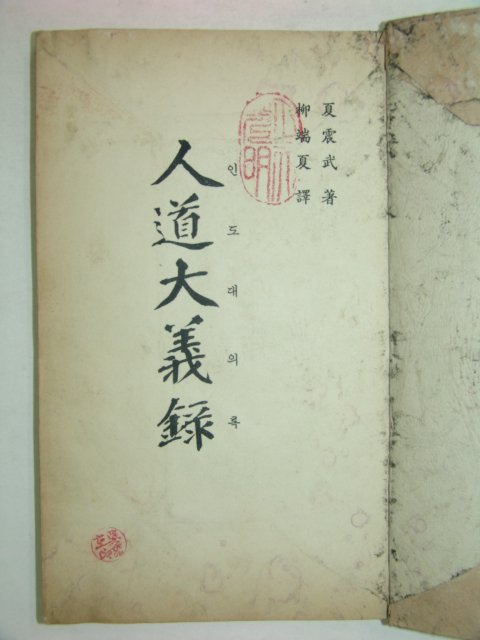 夏震武 著
柳端夏 譯
인도대의록
人道大義錄